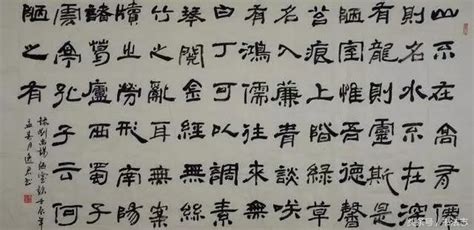 山不在高有僊
則名水不在深
有龍則靈斯是
陋室惟吾德馨
苔痕上階綠草
色入簾青談笑
有鴻儒往來無
白丁可以調素
琴閱金經無絲
竹之亂耳無案
牘之勞形南陽
諸葛廬西蜀子
雲亭孔子云何
陋之有
錄劉禹錫陋室銘壬辰年